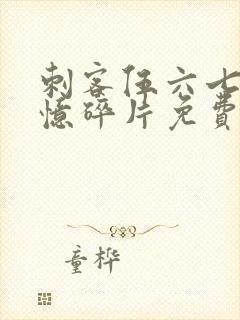 刺客伍六七
憶碎片免費
童桦